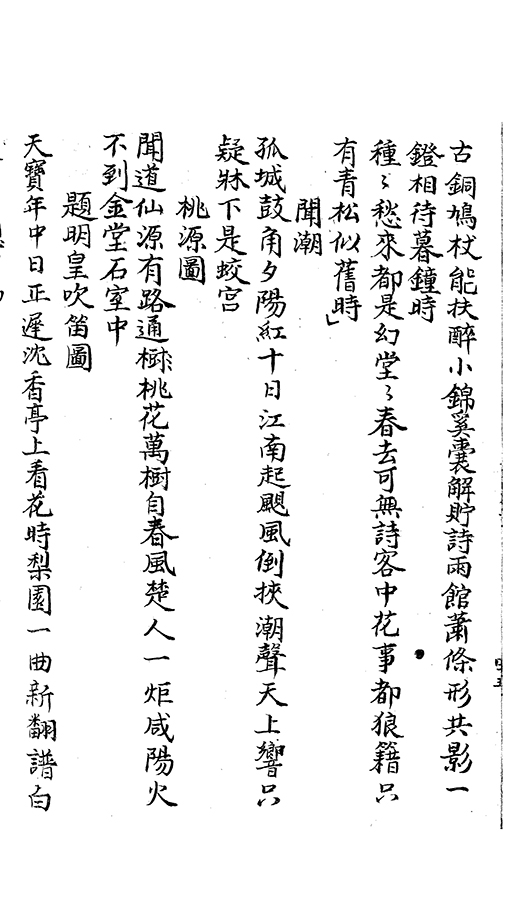 古銅鳩杖能扶醉小錦奚囊解貯詩雨館蕭條形共影一
鐙相待暮鐘時
種〻愁來都是幻堂〻春去可無詩客中花事都狼籍只
有青松似舊時」
聞潮
孤城鼓角夕陽紅十日江南起颶風倒挾潮聲天上響只
疑牀下是蛟宮
桃源圖
聞道仙源有路通桃花萬樹自春風楚人一炬咸陽火
不到金堂石室中
題明皇吹笛圖
天寶年中日正遲沈香亭上看花時梨園一曲新翻譜白